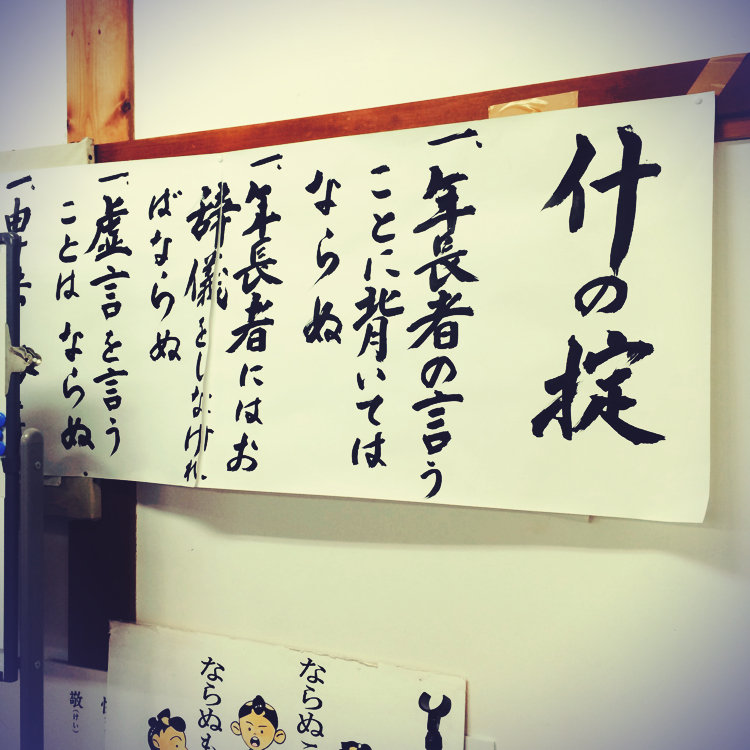 什の掟
一、年長者の言う
ことに背いては
ならぬ
一、年長者にはお
辞儀をしなけれ
ばならぬ
一、虚言を言う
ことはならぬ
一、卑
ならぬ
ならぬも
敬(けい)